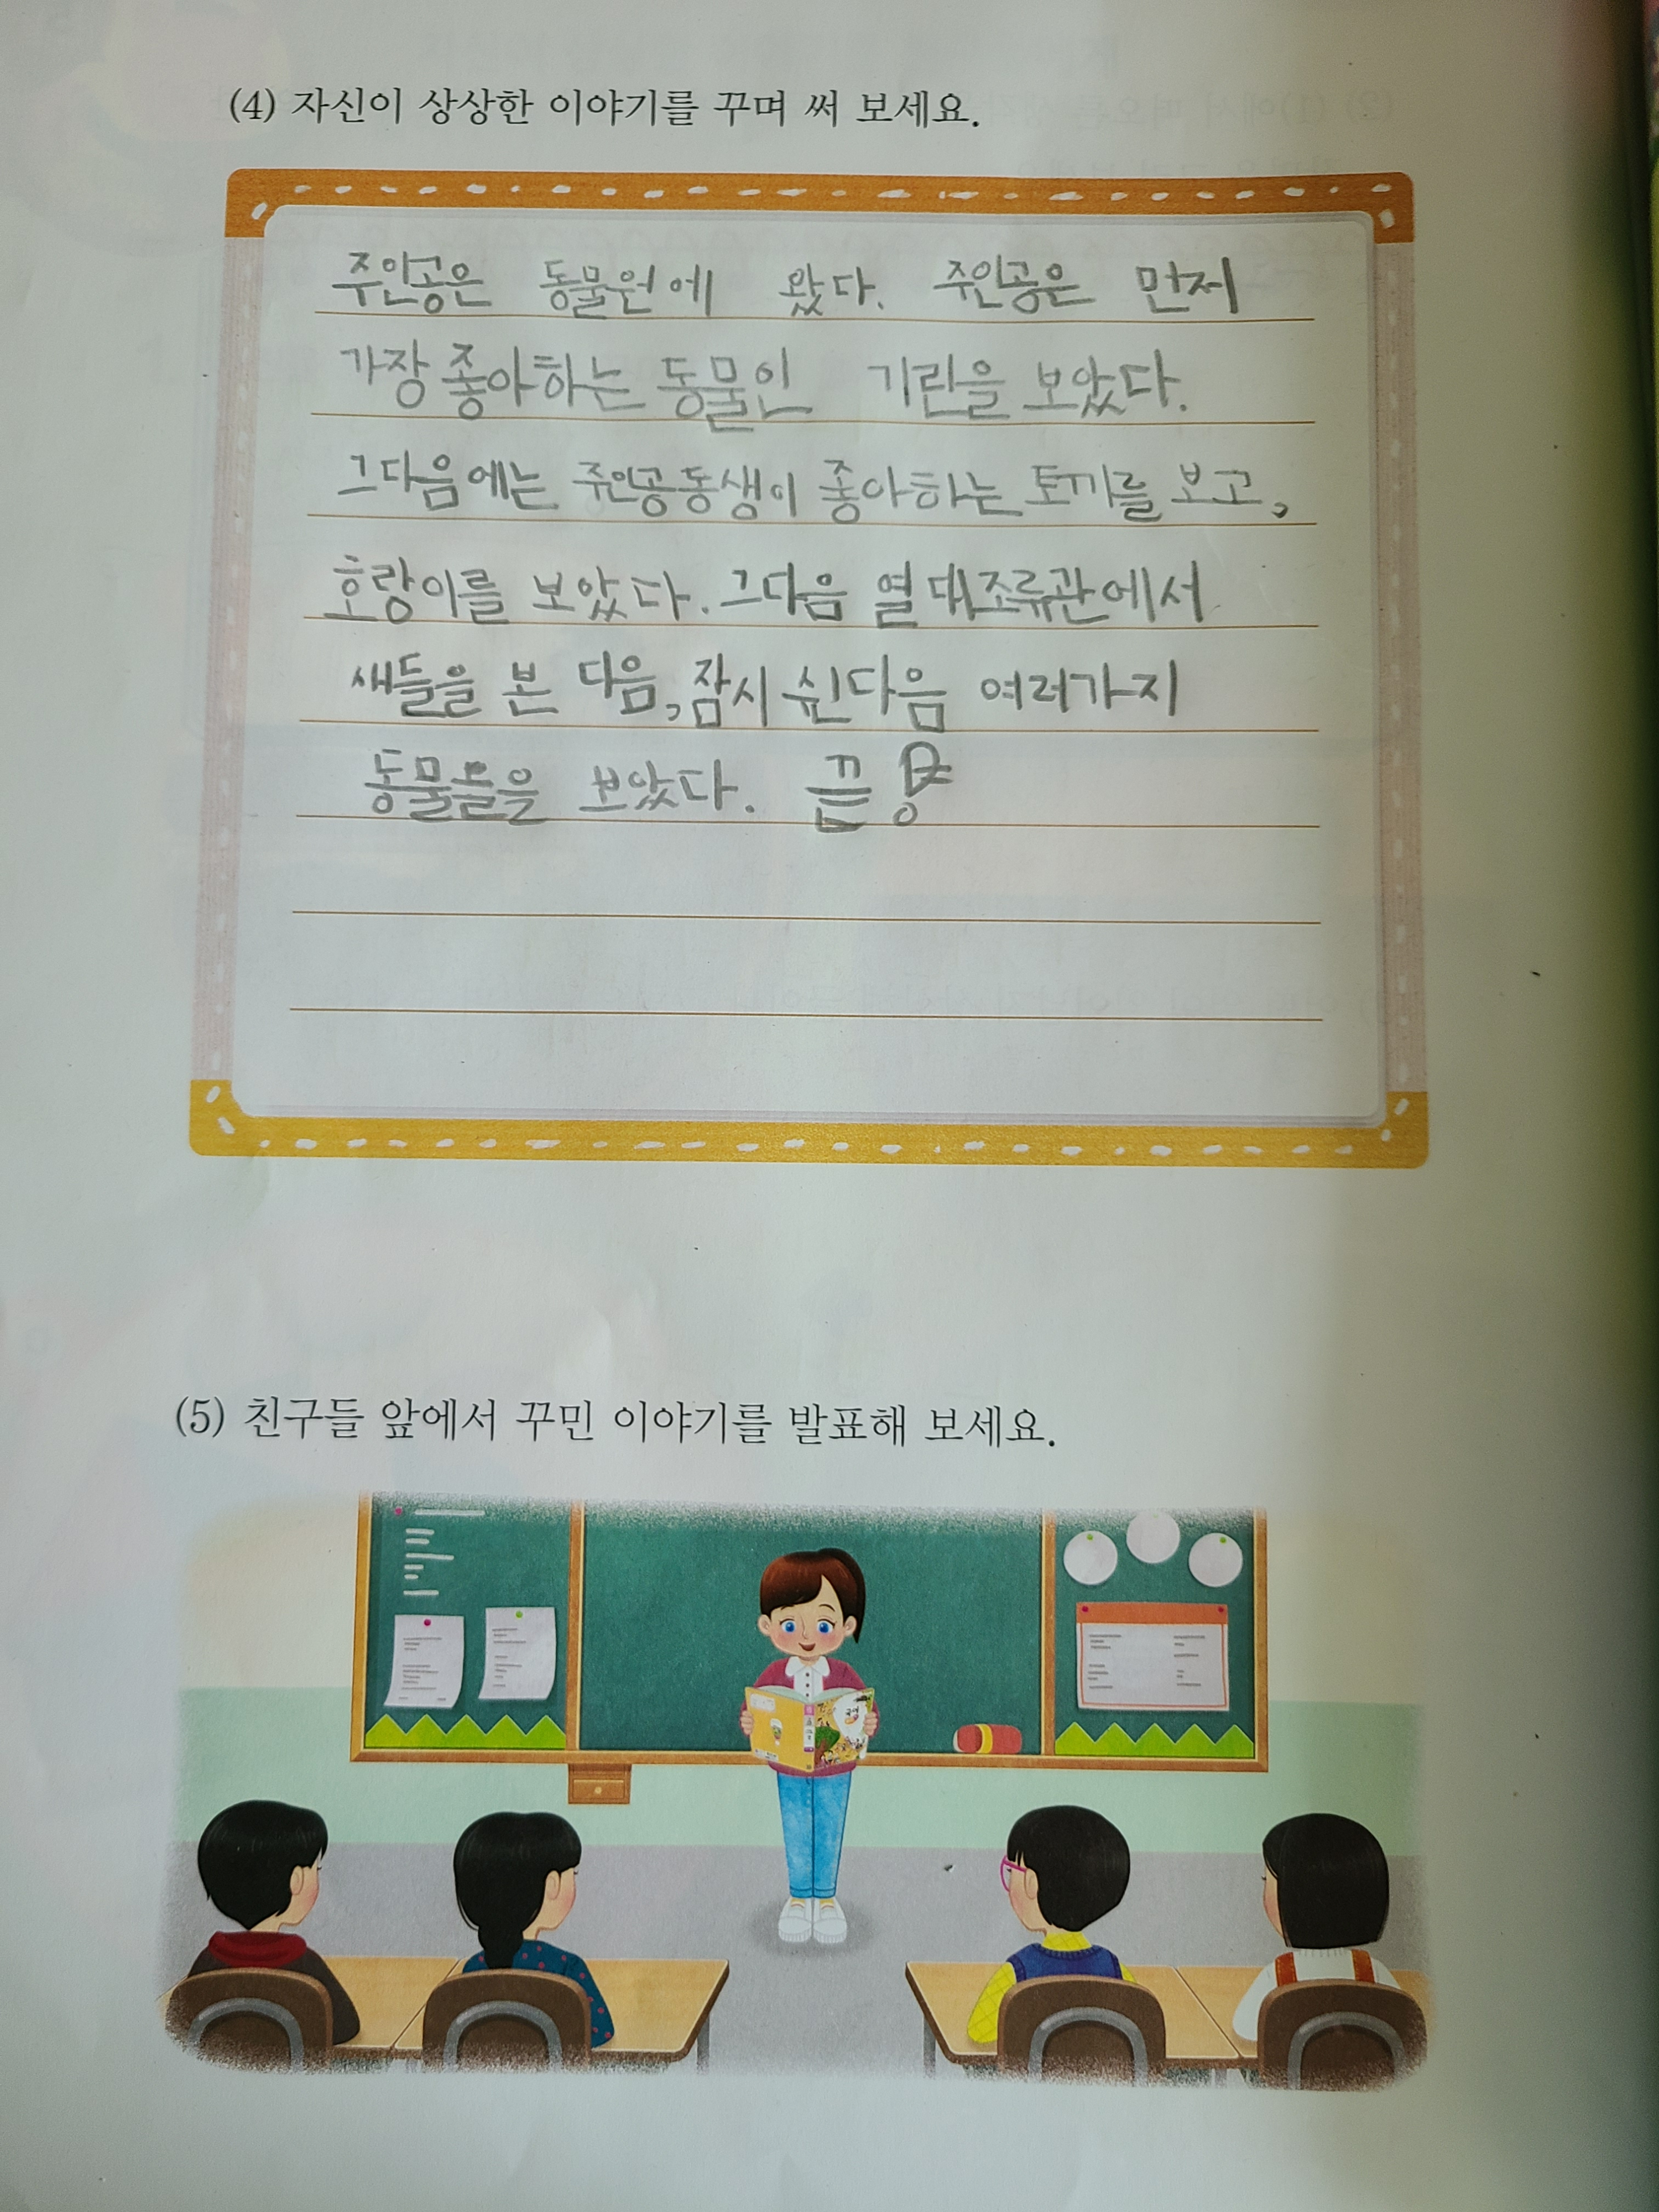 (4) 자신이 상상한 이야기를 꾸며 써 보세요.
주인공은 동물원에 왔다. 주인공은 먼저
가장 좋아하는 동물인 기린을 보았다.
그다음에는 주인공동생이 좋아하는 토끼를 보고,
호랑이를 보았다. 그다음 열대조류관에서
새들을 본 다음, 잠시 쉰다음 여러가지
동물들을 보았다. 끝!
(5) 친구들 앞에서 꾸민 이야기를 발표해 보세요.